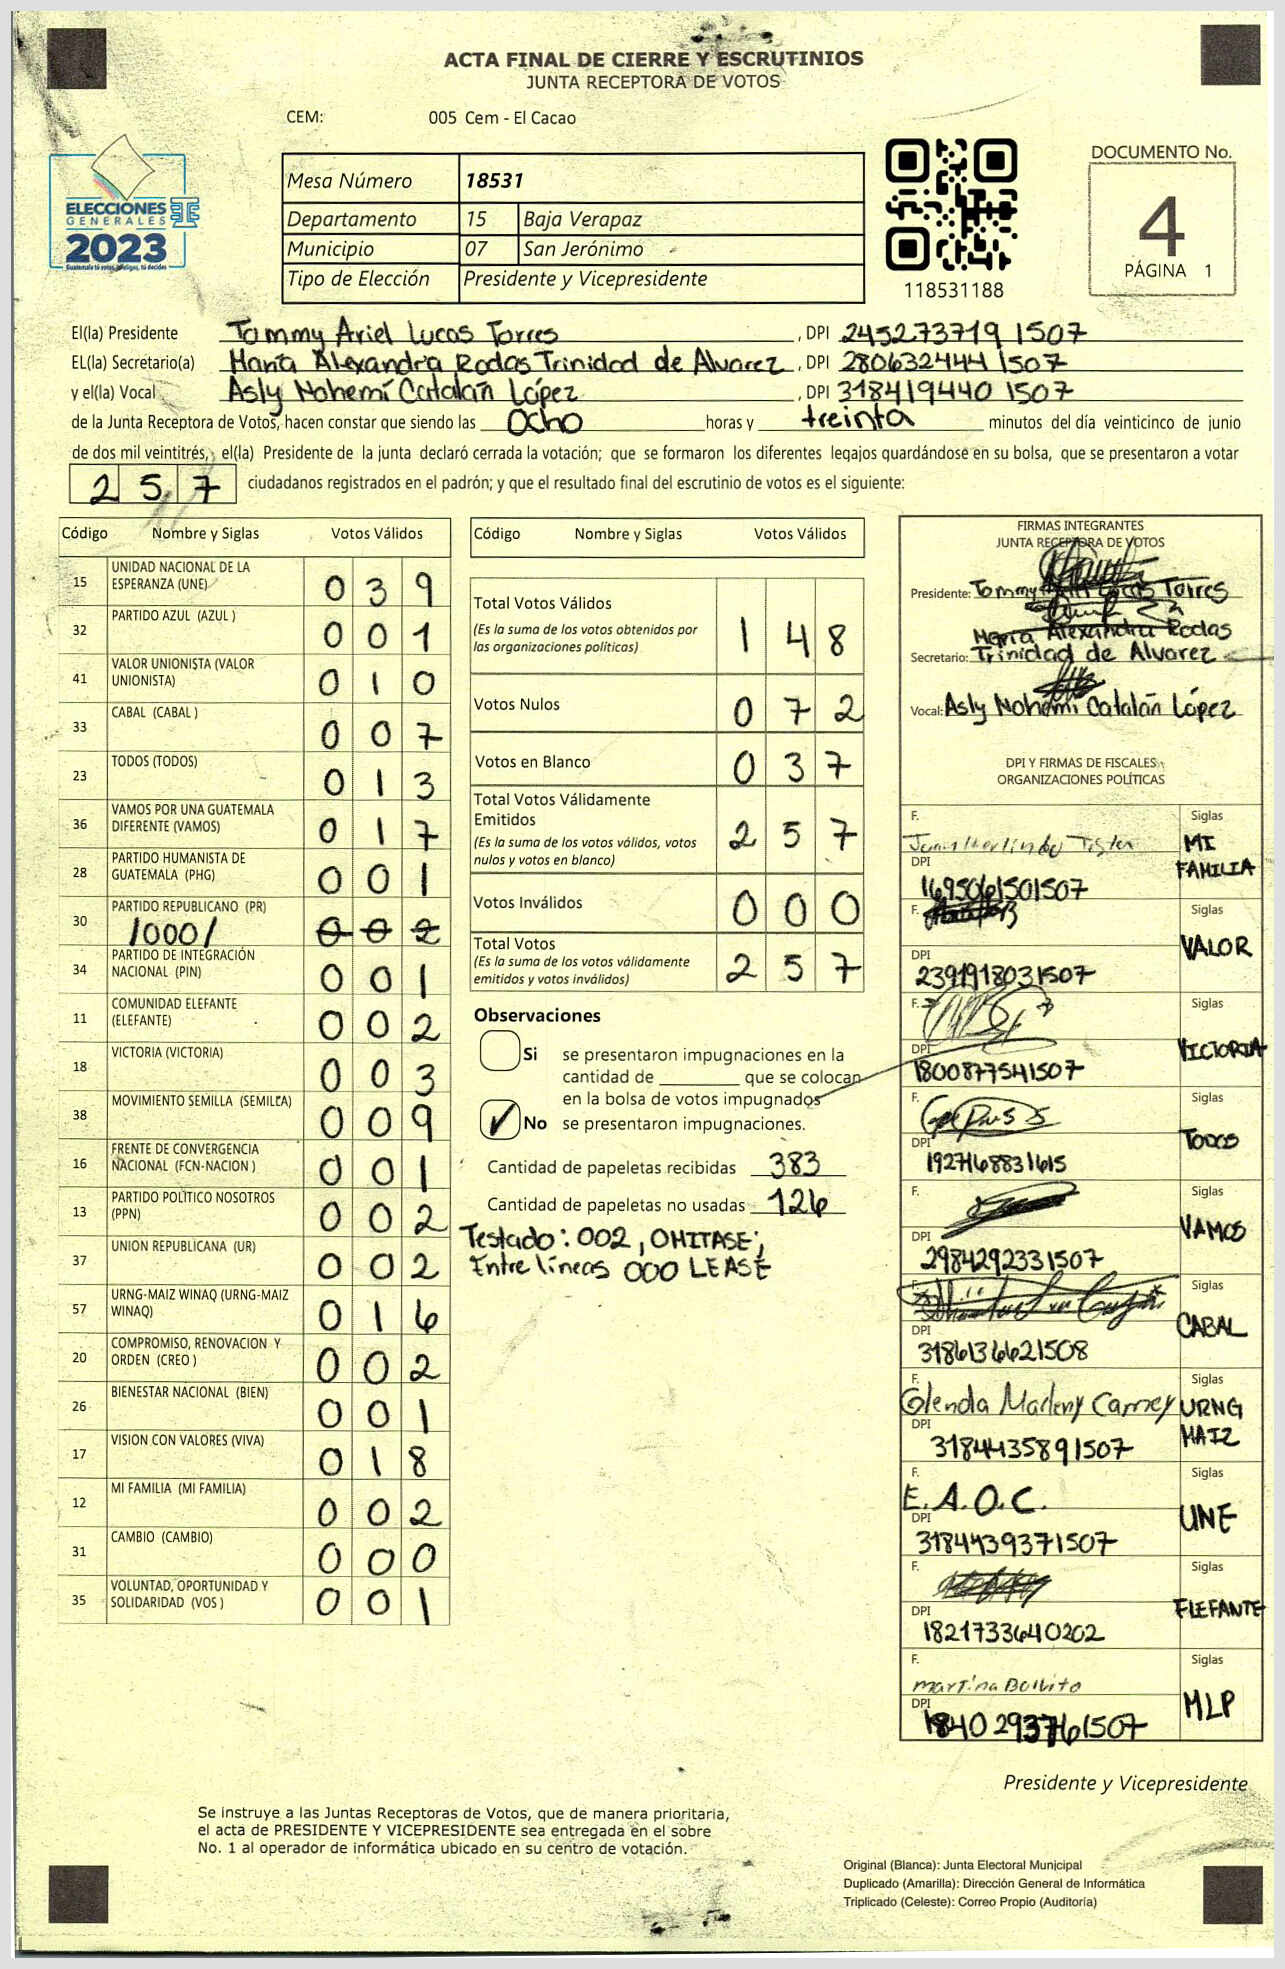 ACTA FINAL DE CIERRE Y ESCRUTINIOS
JUNTA RECEPTORA DE VOTOS
CEM: 005 Cem - El Cacao
ELECCIONES
GENERALES
2023
Guatemala tú votas, tú eliges, tú decides
Mesa Número 18531
Departamento 15 Baja Verapaz
Municipio 07 San Jerónimo
Tipo de Elección Presidente y Vicepresidente
118531188
DOCUMENTO No.
4
PÁGINA 1
El(la) Presidente Tommy Ariel Lucas Torres, DPI 245273719 1507
EL(la) Secretario(a) María Alexandra Rodas Trinidad de Alvarez, DPI 280632444 1507
y el(la) Vocal Asly Nohemí Catalán López, DPI 318419440 1507
de la Junta Receptora de Votos, hacen constar que siendo las Ocho horas y treinta minutos del día veinticinco de junio
de dos mil veintitrés, el(la) Presidente de la junta declaró cerrada la votación; que se formaron los diferentes legajos guardándose en su bolsa, que se presentaron a votar
257 ciudadanos registrados en el padrón; y que el resultado final del escrutinio de votos es el siguiente:
Código Nombre y Siglas Votos Válidos
15 UNIDAD NACIONAL DE LA ESPERANZA (UNE) 039
32 PARTIDO AZUL (AZUL ) 001
41 VALOR UNIONISTA (VALOR UNIONISTA) 010
33 CABAL (CABAL ) 007
23 TODOS (TODOS) 013
36 VAMOS POR UNA GUATEMALA DIFERENTE (VAMOS) 017
28 PARTIDO HUMANISTA DE GUATEMALA (PHG) 001
30 PARTIDO REPUBLICANO (PR) /000/ 002
34 PARTIDO DE INTEGRACIÓN NACIONAL (PIN) 001
11 COMUNIDAD ELEFANTE (ELEFANTE) 002
18 VICTORIA (VICTORIA) 003
38 MOVIMIENTO SEMILLA (SEMILLA) 009
16 FRENTE DE CONVERGENCIA NACIONAL (FCN-NACION ) 001
13 PARTIDO POLÍTICO NOSOTROS (PPN) 002
37 UNION REPUBLICANA (UR) 002
57 URNG-MAIZ WINAQ (URNG-MAIZ WINAQ) 016
20 COMPROMISO, RENOVACION Y ORDEN (CREO ) 002
26 BIENESTAR NACIONAL (BIEN) 001
17 VISION CON VALORES (VIVA) 018
12 MI FAMILIA (MI FAMILIA) 002
31 CAMBIO (CAMBIO) 000
35 VOLUNTAD, OPORTUNIDAD Y SOLIDARIDAD (VOS ) 001
Código Nombre y Siglas Votos Válidos
Total Votos Válidos
(Es la suma de los votos obtenidos por las organizaciones políticas) 148
Votos Nulos 072
Votos en Blanco 037
Total Votos Válidamente Emitidos
(Es la suma de los votos válidos, votos nulos y votos en blanco) 257
Votos Inválidos 000
Total Votos
(Es la suma de los votos válidamente emitidos y votos inválidos) 257
Observaciones
Si se presentaron impugnaciones en la
cantidad de ________ que se colocan
en la bolsa de votos impugnados
No se presentaron impugnaciones.
Cantidad de papeletas recibidas 383
Cantidad de papeletas no usadas 126
Testado: 002, OMITASE;
Entre líneas 000 LEASE
FIRMAS INTEGRANTES
JUNTA RECEPTORA DE VOTOS
Presidente: Tommy Lucas Torres
María Alexandra Rodas
Secretario: Trinidad de Alvarez
Vocal: Asly Nohemí Catalán López
DPI Y FIRMAS DE FISCALES
ORGANIZACIONES POLÍTICAS
F. Siglas MI FAMILIA
DPI 1695061501507
F. Siglas VALOR
DPI 2391918031507
F. Siglas VICTORIA
DPI 1800877541507
F. Siglas TODOS
DPI 1927168831615
F. Siglas VAMOS
DPI 2984292331507
F. Siglas CABAL
DPI 3186136621508
F. Glenda Marleny Carney Siglas URNG MAIZ
DPI 3184435891507
F. E.A.O.C. Siglas UNE
DPI 3184439371507
F. Siglas ELEFANTE
DPI 1821733640202
F. Martina Siglas MLP
DPI 1840293761507
Presidente y Vicepresidente
Se instruye a las Juntas Receptoras de Votos, que de manera prioritaria,
el acta de PRESIDENTE Y VICEPRESIDENTE sea entregada en el sobre
No. 1 al operador de informática ubicado en su centro de votación.
Original (Blanca): Junta Electoral Municipal
Duplicado (Amarilla): Dirección General de Informática
Triplicado (Celeste): Correo Propio (Auditoría)